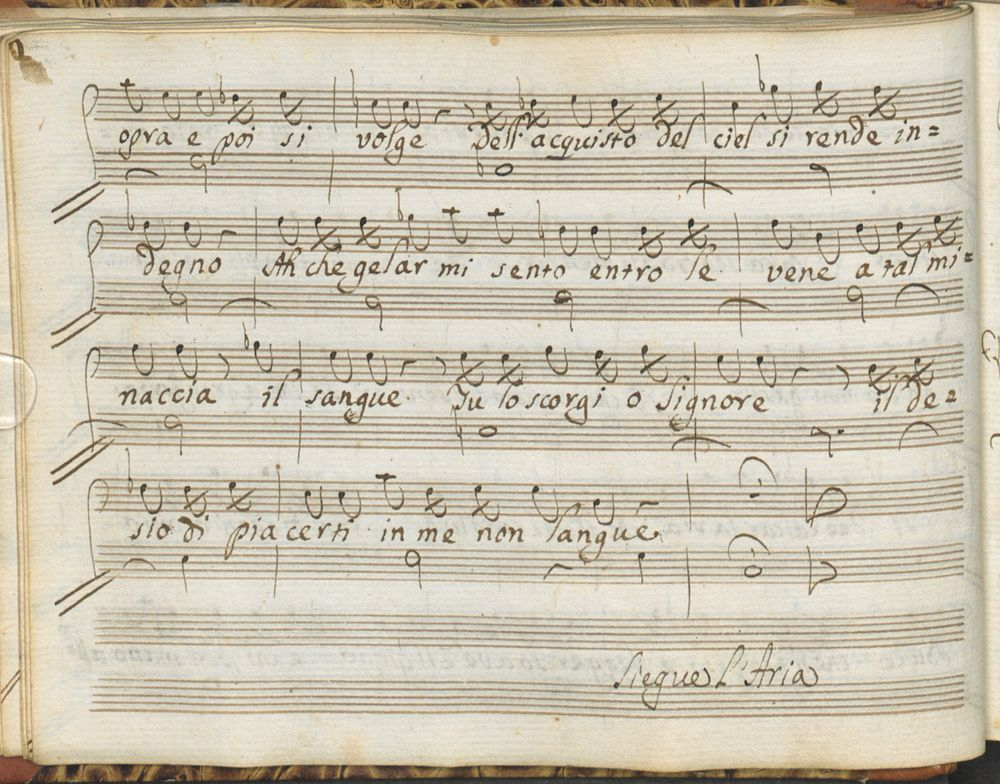 opra e poi si volge Dell' acquisto del ciel si rende in=
degno Ah che gelar mi sento entro le vene a tal mi=
naccia il sangue. Tu lo scorgi o Signore il de=
sio di piacerti in me non langue.
Siegue L'Aria